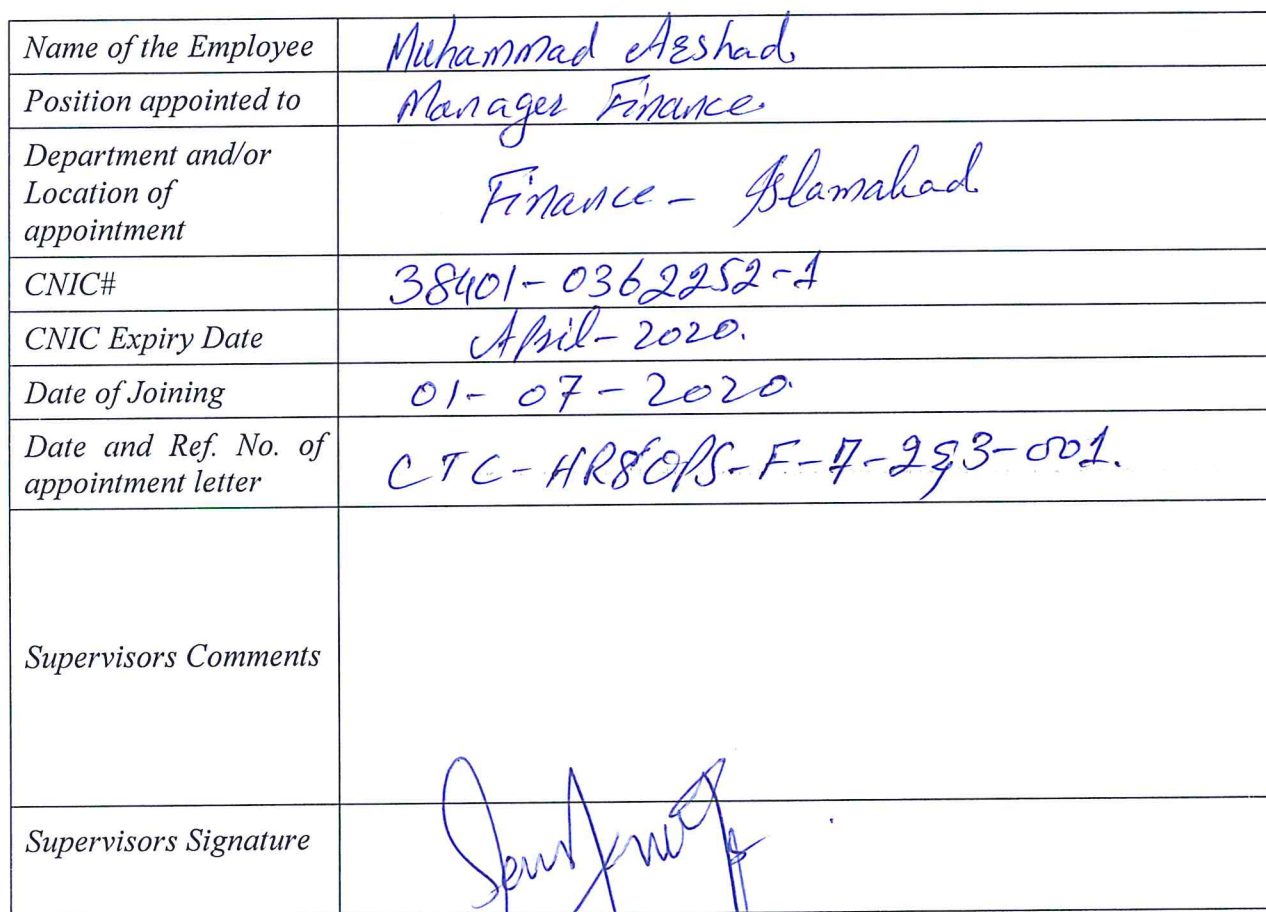 Name of the Employee Muhammad Arshad
Position appointed to Manager Finance.
Department and/or
Location of
appointment
Finance - Islamabad
CNIC# 38401-0362252-1
CNIC Expiry Date April-2020.
Date of Joining 01-07-2020
Date and Ref. No. of
appointment letter
CTC-HR&OPS-F-7-2&3-001.
Supervisors Comments
Supervisors Signature